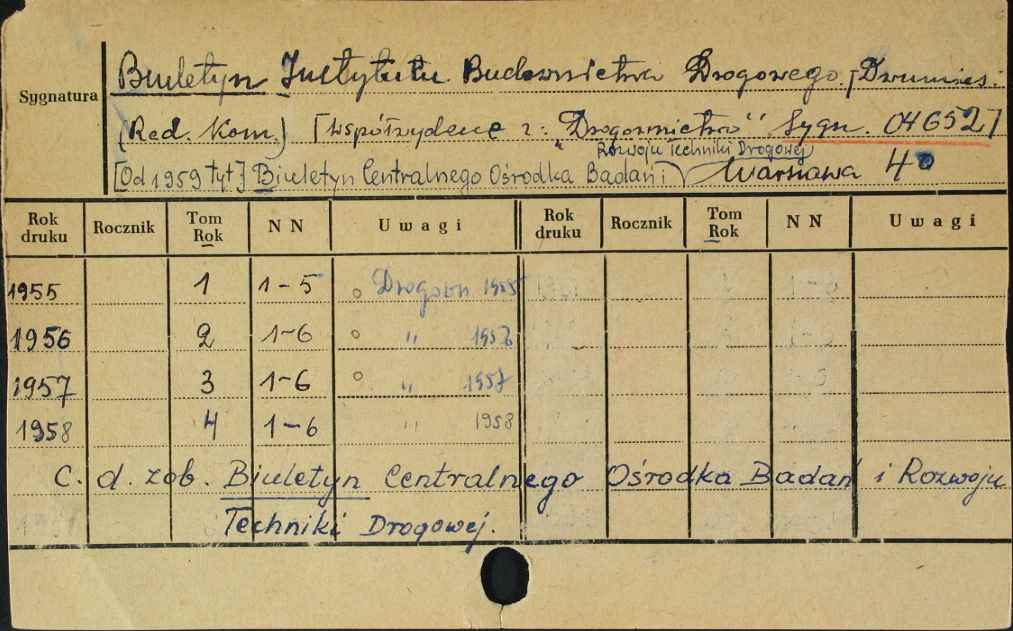 Sygnatura
Biuletyn Instytutu Budownictwa Drogowego. /Dwumies.
(Red. Kom.) [współwydane z: "Drogownictwo" Sygn. 04652]
Rozwoju Techniki Drogowej
[Od 1959 tyt] Biuletyn Centralnego Ośrodka Badań i Warszawa 4°
Rok druku Rocznik Tom Rok NN Uwagi Rok druku Rocznik Tom Rok NN Uwagi
1955 1 1-5 1955
1956 2 1-6 " 1956
1957 3 1-6 " 1957
1958 4 1-6 " 1958
C. d. zob. Biuletyn Centralnego Ośrodka Badań i Rozwoju
Techniki Drogowej.